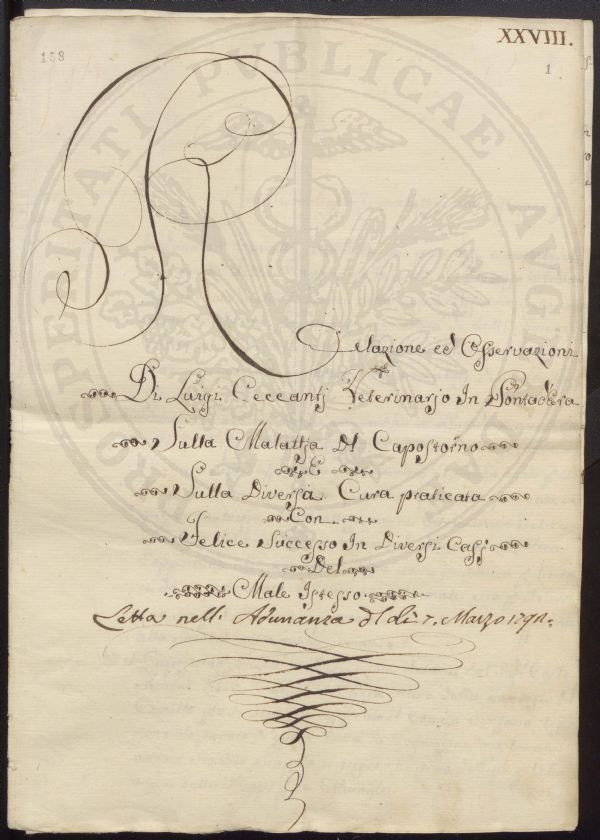 XXVIII.
158
1
Relazione ed Osservazioni
Di Luigi Ceccantj Veterinarjo In Pontadera
Sulla Malattja Dl Capostorno
E
Sulla Diversa Cura praticata
Con
Felice Successo In Diversi Casj
Del
Male Istesso
Letta nell: Adunanza dl dì 7. Marzo
PROSPERITATI PVBLICAE AVG